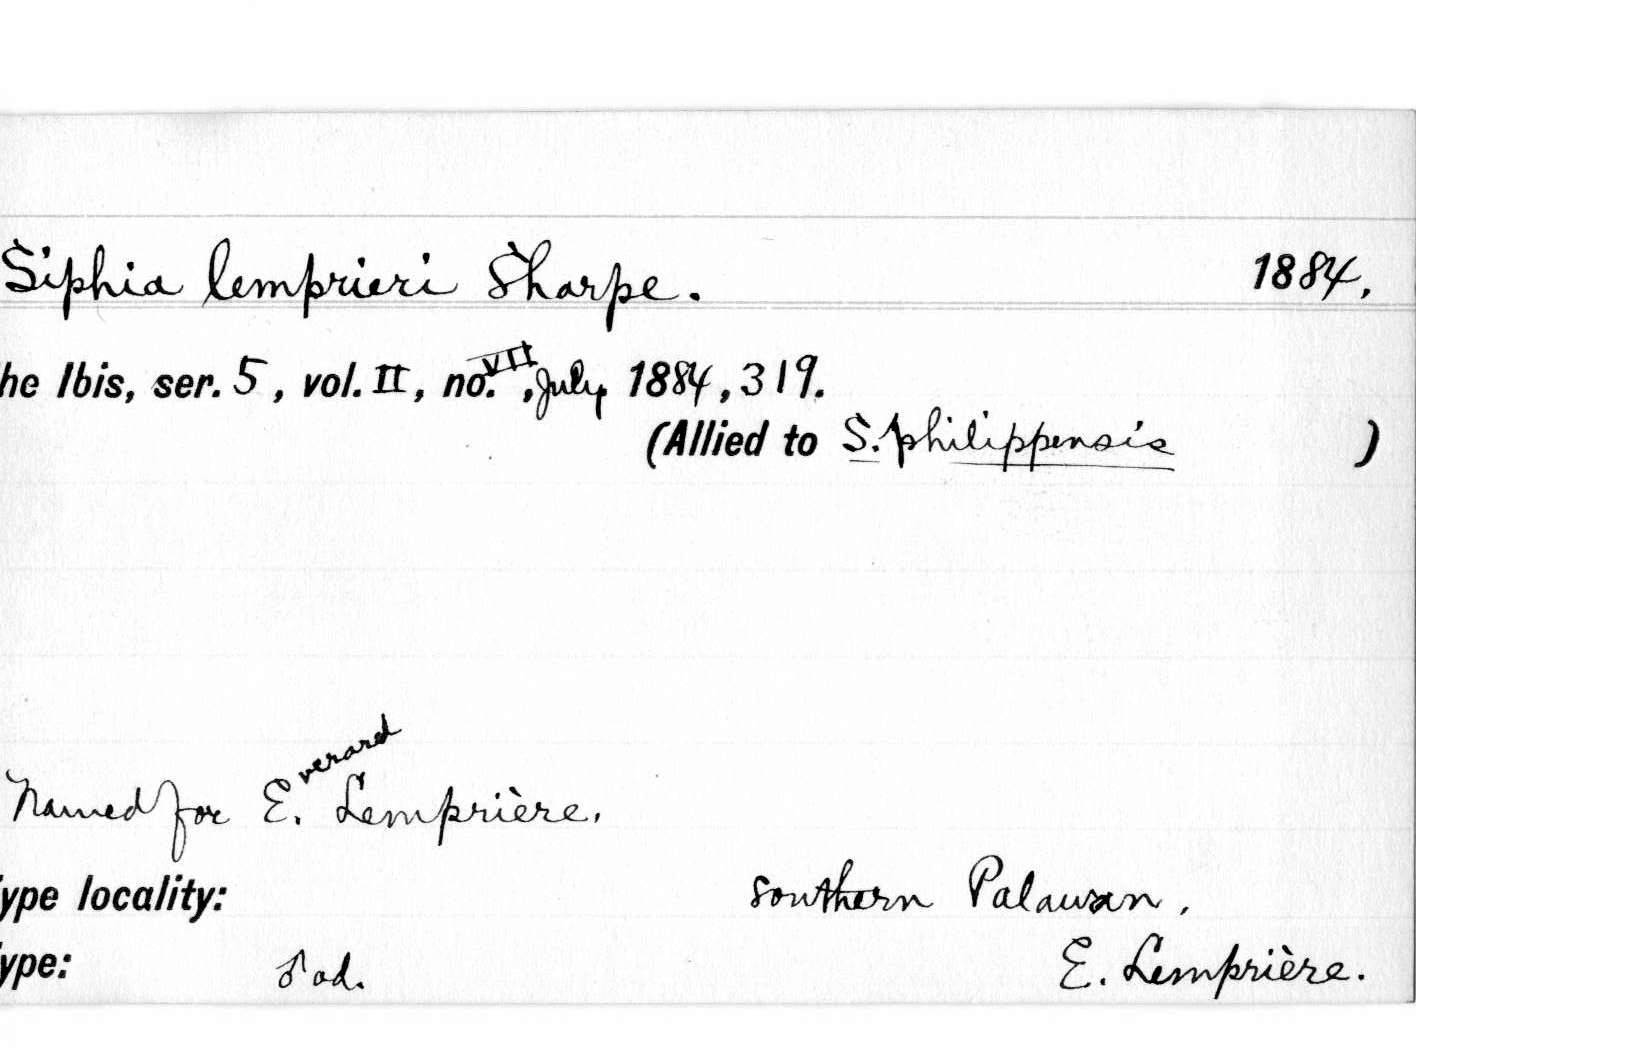 Siphia lemprieri Sharpe. 1884.
he Ibis, ser. 5, vol. II, no. VII, July, 1884, 319.
(Allied to S. philippensis )
Named for Everard Lemprière.
ype locality: southern Palawan.
ype: ♂ ad. E. Lemprière.